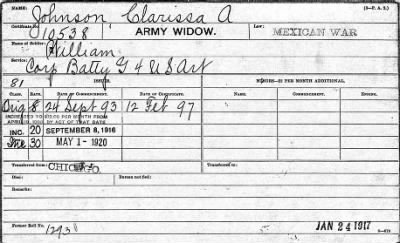 NAME: Johnson, Clarissa A (3-P. A. S.)
Certificate No. 10538 ARMY WIDOW. Law: MEXICAN WAR
Name of Soldier: William
Service: Corp Batty G 4 US Art
81 ISSUE. MINORS—$2 PER MONTH ADDITIONAL
RATE. DATE OF COMMENCEMENT. DATE OF CERTIFICATE. NAME. DATE OF COMMENCEMENT.
Orig 8 24 Sept 93 12 Feb 97
INCREASED TO $12.00 PER MONTH FROM
APRIL 19, 1908, BY ACT OF THAT DATE
INC. 20 SEPTEMBER 8, 1916
Inc 30 MAY 1 - 1920
Transferred from: CHICAGO. Transferred to:
Died: Bureau notified:
Remarks:
Former Roll No. JAN 24 1917